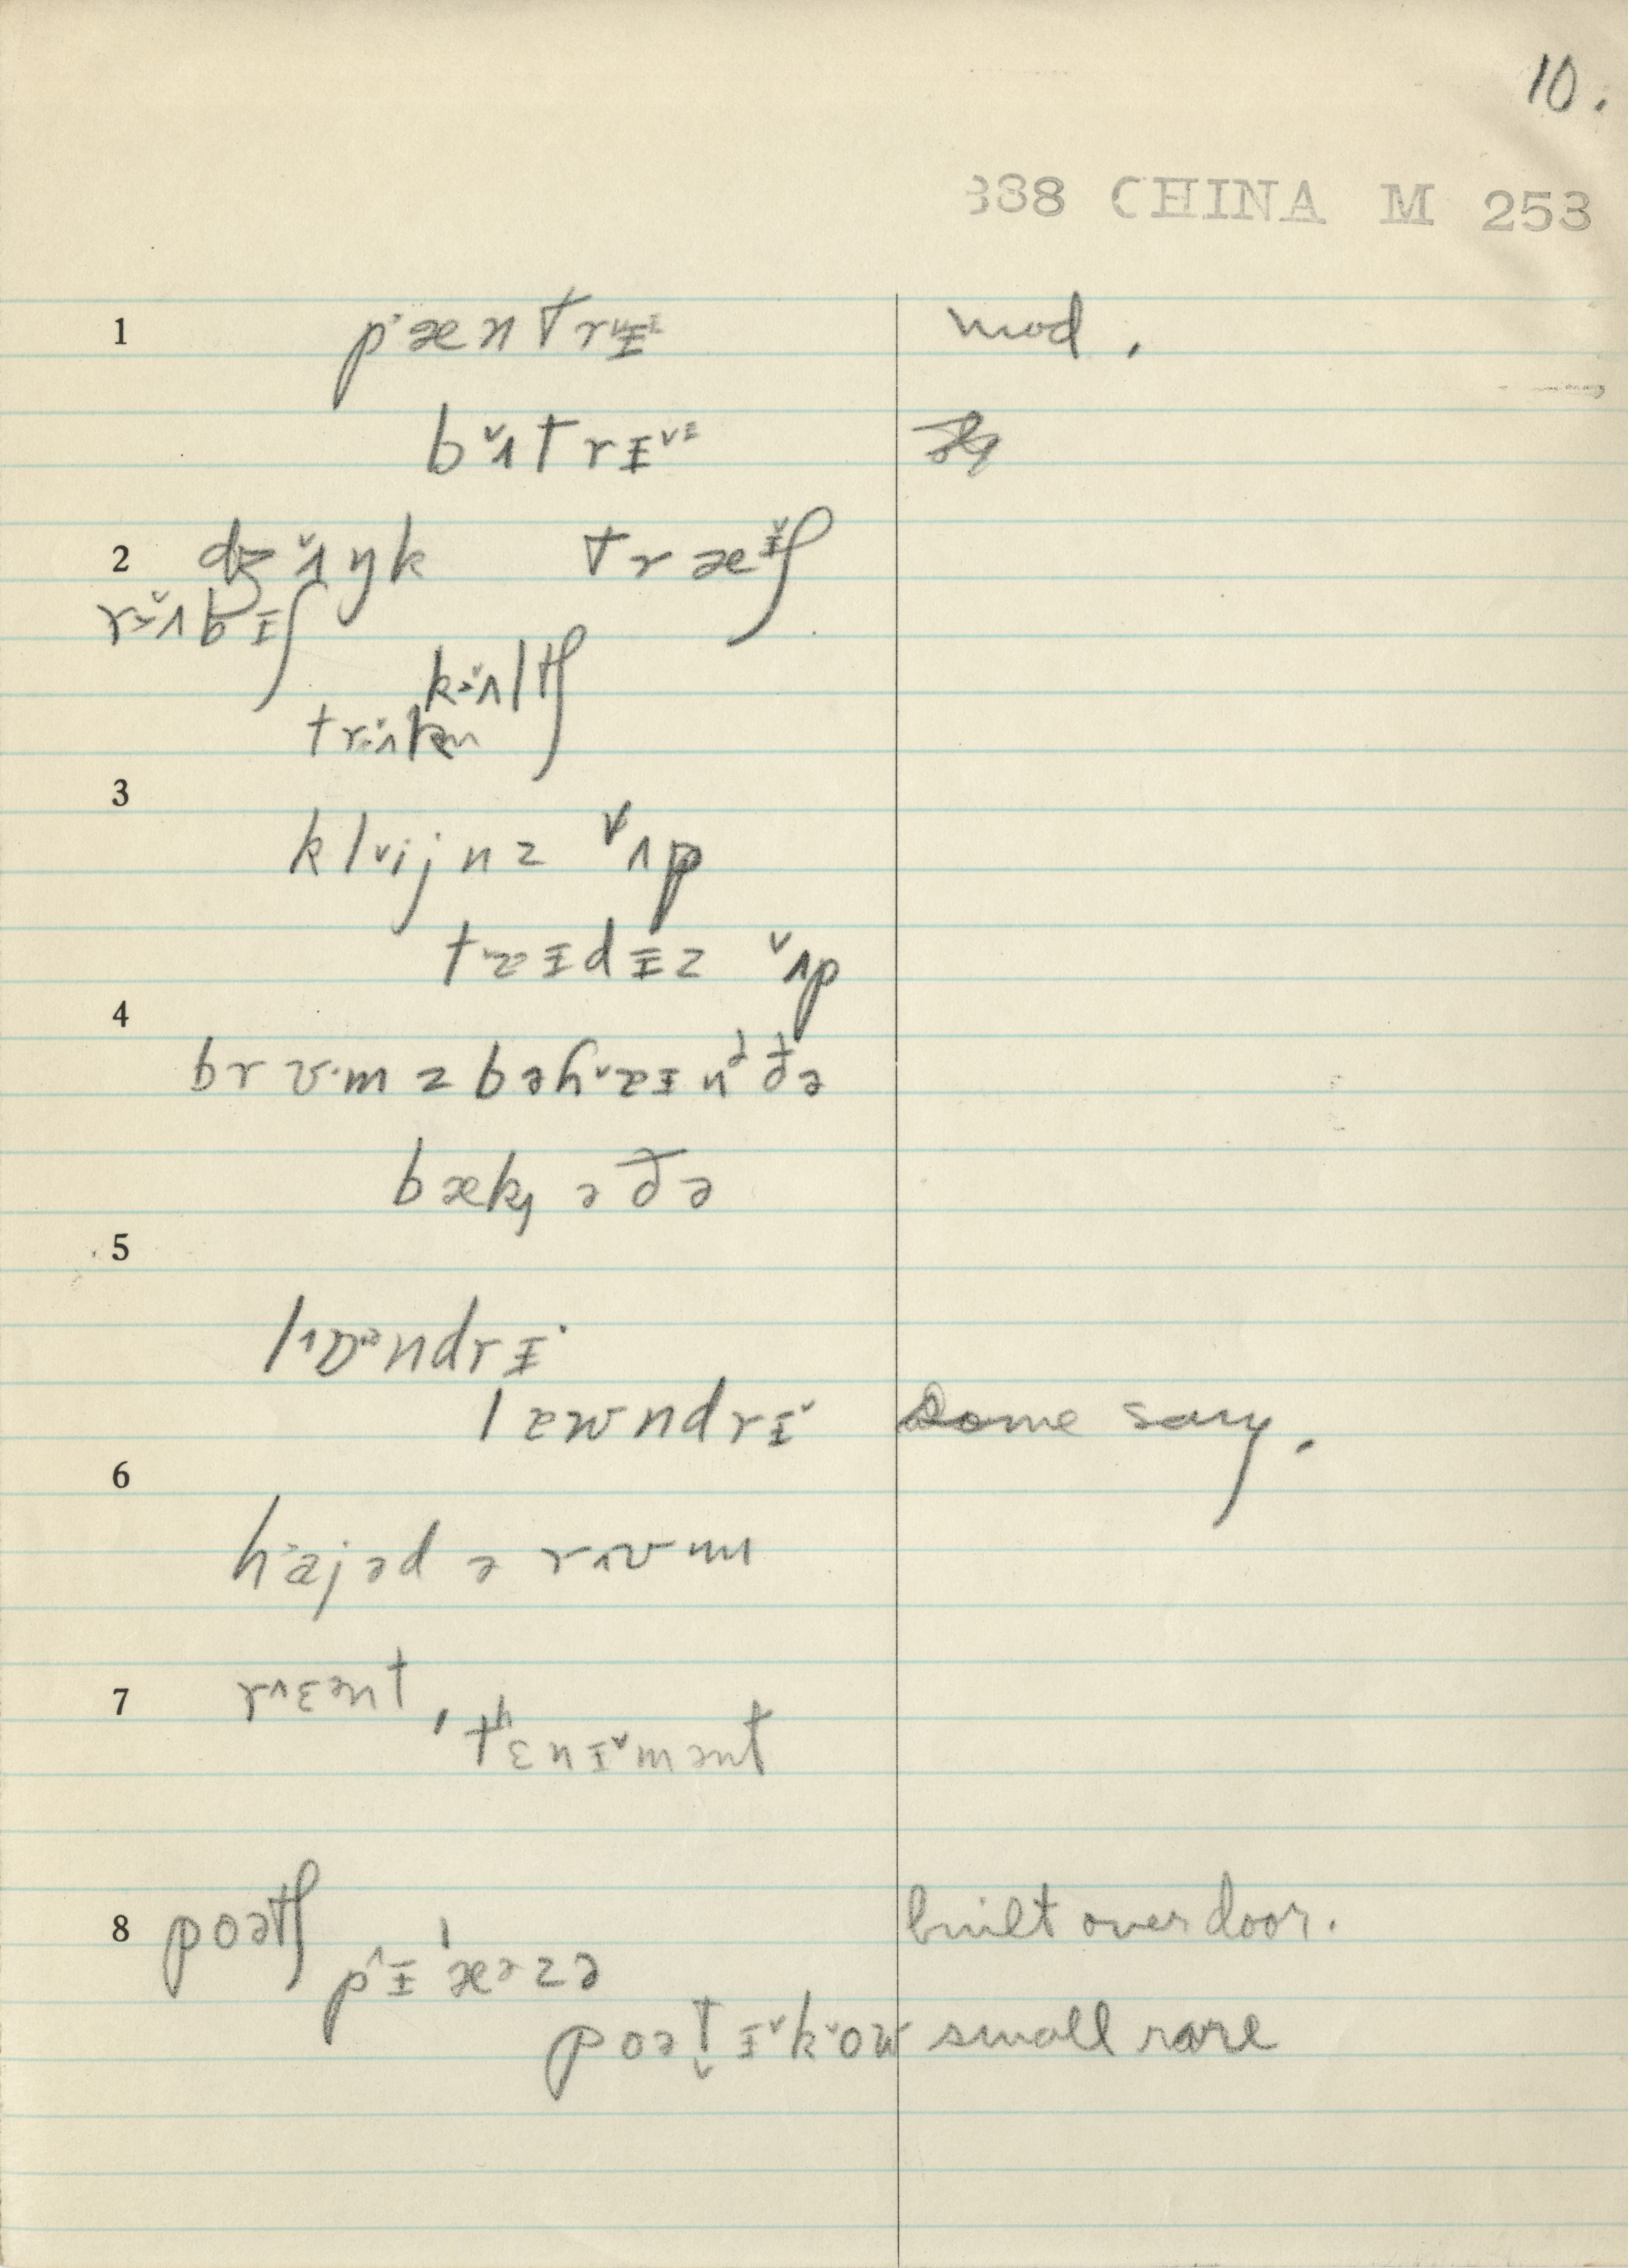 10.
388 CHINA M 253
1 pæntrɪ mod.
bʌtrɪ
2 dʒʌŋk træɪʃ
rʌbɪʃ
kʌltʃ
trʌk
3
klijnz ʌp
tɐɪdɪz ʌp
4
brʊmz bəhɐɪnd ðə
bæk ə ðə
5
lɒndrɪ
lɐwndrɪ Some say.
6
hajəd ə rʊm
7 rɛənt, tʰɛnɪmənt
8 poətʃ built over door.
pɪæzə
poətɪkow small rare